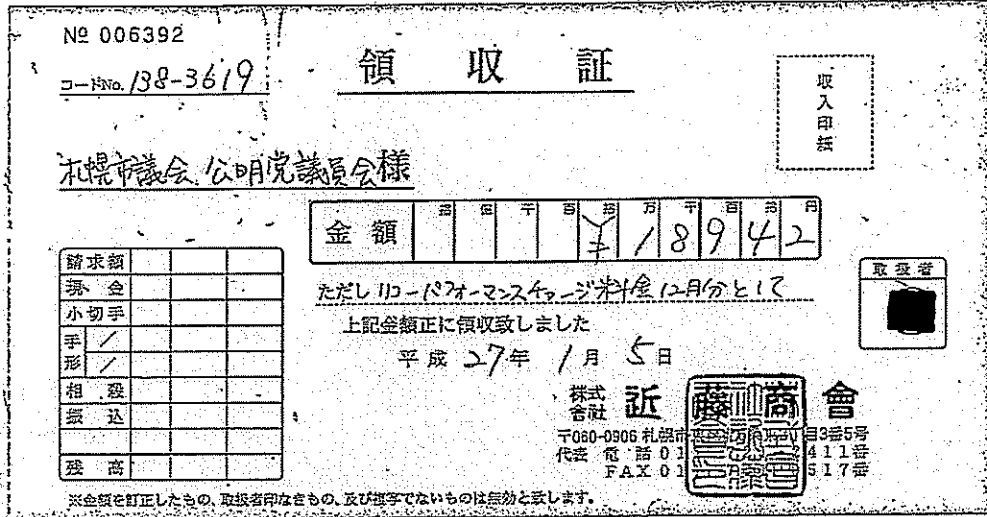 № 006392
コードNo. 138-3619
領収証
収入印紙
札幌市議会 公明党議員会様
金額 拾 億 千 百 拾 万 千 百 拾 円
¥18942
請求額
現金
小切手
手形
相殺
振込
残高
ただし リコーパフォーマンスチャージ料金12月分として
上記金額正に領収致しました
平成27年1月5日
取扱者
株式会社 近藤商會
〒060-0906 札幌市 目3番5号
代表 電話 01 411番
FAX 01 517番
※金額を訂正したもの、取扱者印なきもの、及び複写でないものは無効と致します。